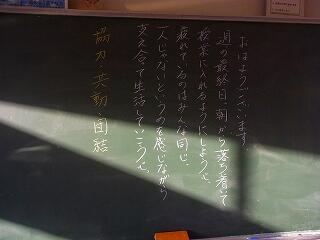 おはようございます。
週の最終日、朝から落ち着いて
授業に入れるようにしよう。
疲れているのはみんな同じ。
一人じゃないというのを感じながら
支え合って生活していこう。
協力・共動・団結